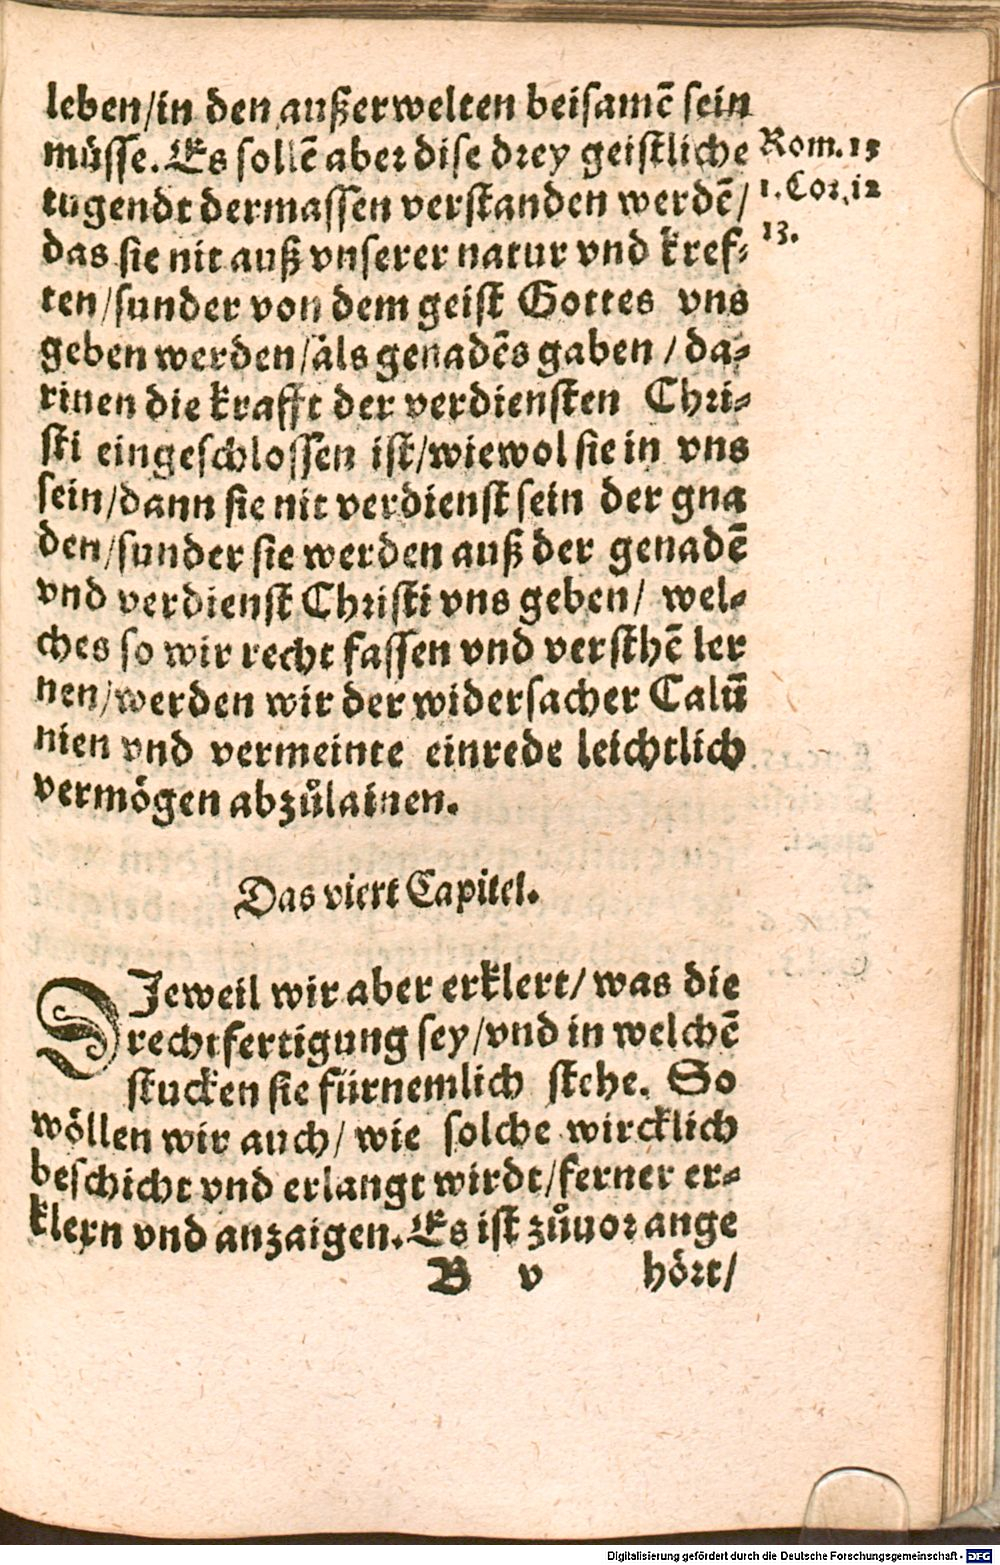 leben/in den außerwelten beisamē sein
müsse. Es sollē aber dise drey geistliche
tugendt dermassen verstanden werdē/
das sie nit auß vnserer natur vnd kref-
ten/sunder von dem geist Gottes vns
geben werden/als genadēs gaben / da-
rinen die krafft der verdiensten Chri-
sti eingeschlossen ist/wiewol sie in vns
sein/dann sie nit verdienst sein der gna
den/sunder sie werden auß der genadē
vnd verdienst Christi vns geben/ wel-
ches so wir recht fassen vnd versthē ler
nen/werden wir der widersacher Calū
nien vnd vermeinte einrede leichtlich
vermögen abzůlainen.
Rom. 15
1. Cor. 12
13.
Das viert Capitel.
DJeweil wir aber erklert/ was die
rechtfertigung sey/vnd in welchē
stucken sie fürnemlich stehe. So
wöllen wir auch/ wie solche wircklich
beschicht vnd erlangt wirdt/ferner er-
klern vnd anzaigen. Es ist zůuor ange
B v hört/
Digitalisierung gefördert durch die Deutsche Forschungsgemeinschaft - DFG